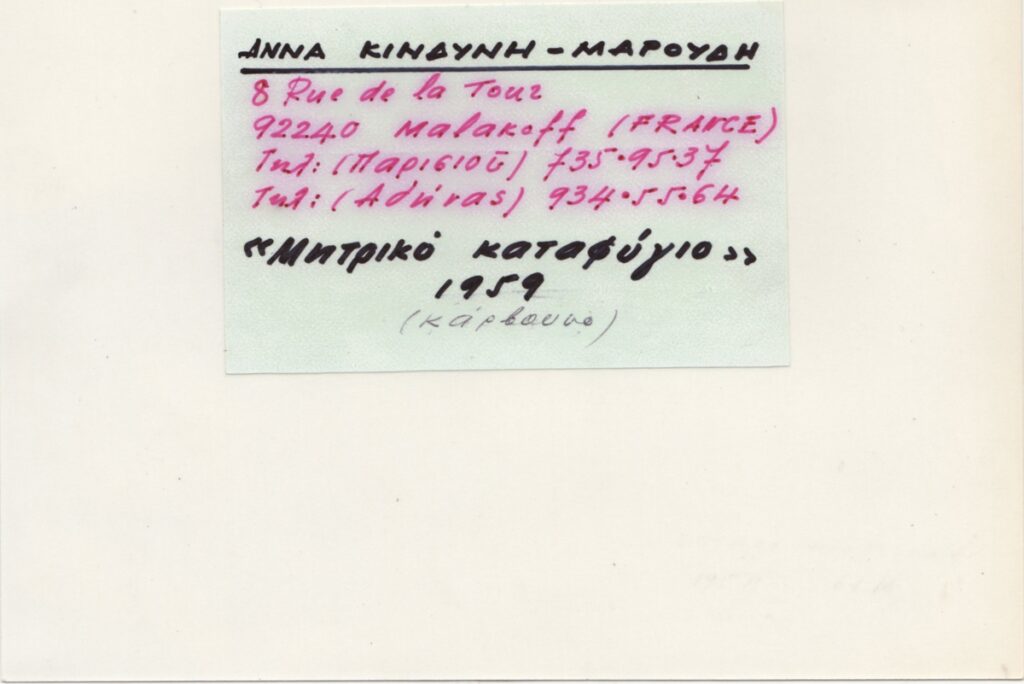 ΑΝΝΑ ΚΙΝΔΥΝΗ - ΜΑΡΟΥΔΗ
8 Rue de la Tour
92240 Malakoff (FRANCE)
Τηλ: (Παρισιού) 735.95.37
Τηλ: (Αθήνας) 934.55.64
«Μητρικό καταφύγιο»
1959
(κάρβουνο)